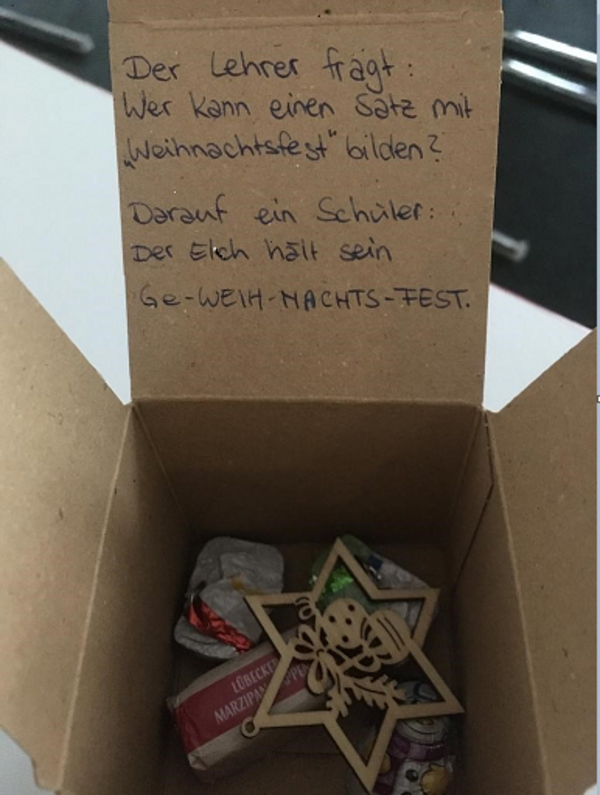 Der Lehrer fragt:
Wer kann einen Satz mit
„Weihnachtsfest" bilden?
Darauf ein Schüler:
Der Elch hält sein
Ge-WEIH-NACHTS-FEST.
LÜBECKER
MARZIPAN